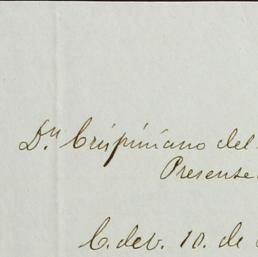 Dn Crispiniano del
Presente.
C. de V. 10. de